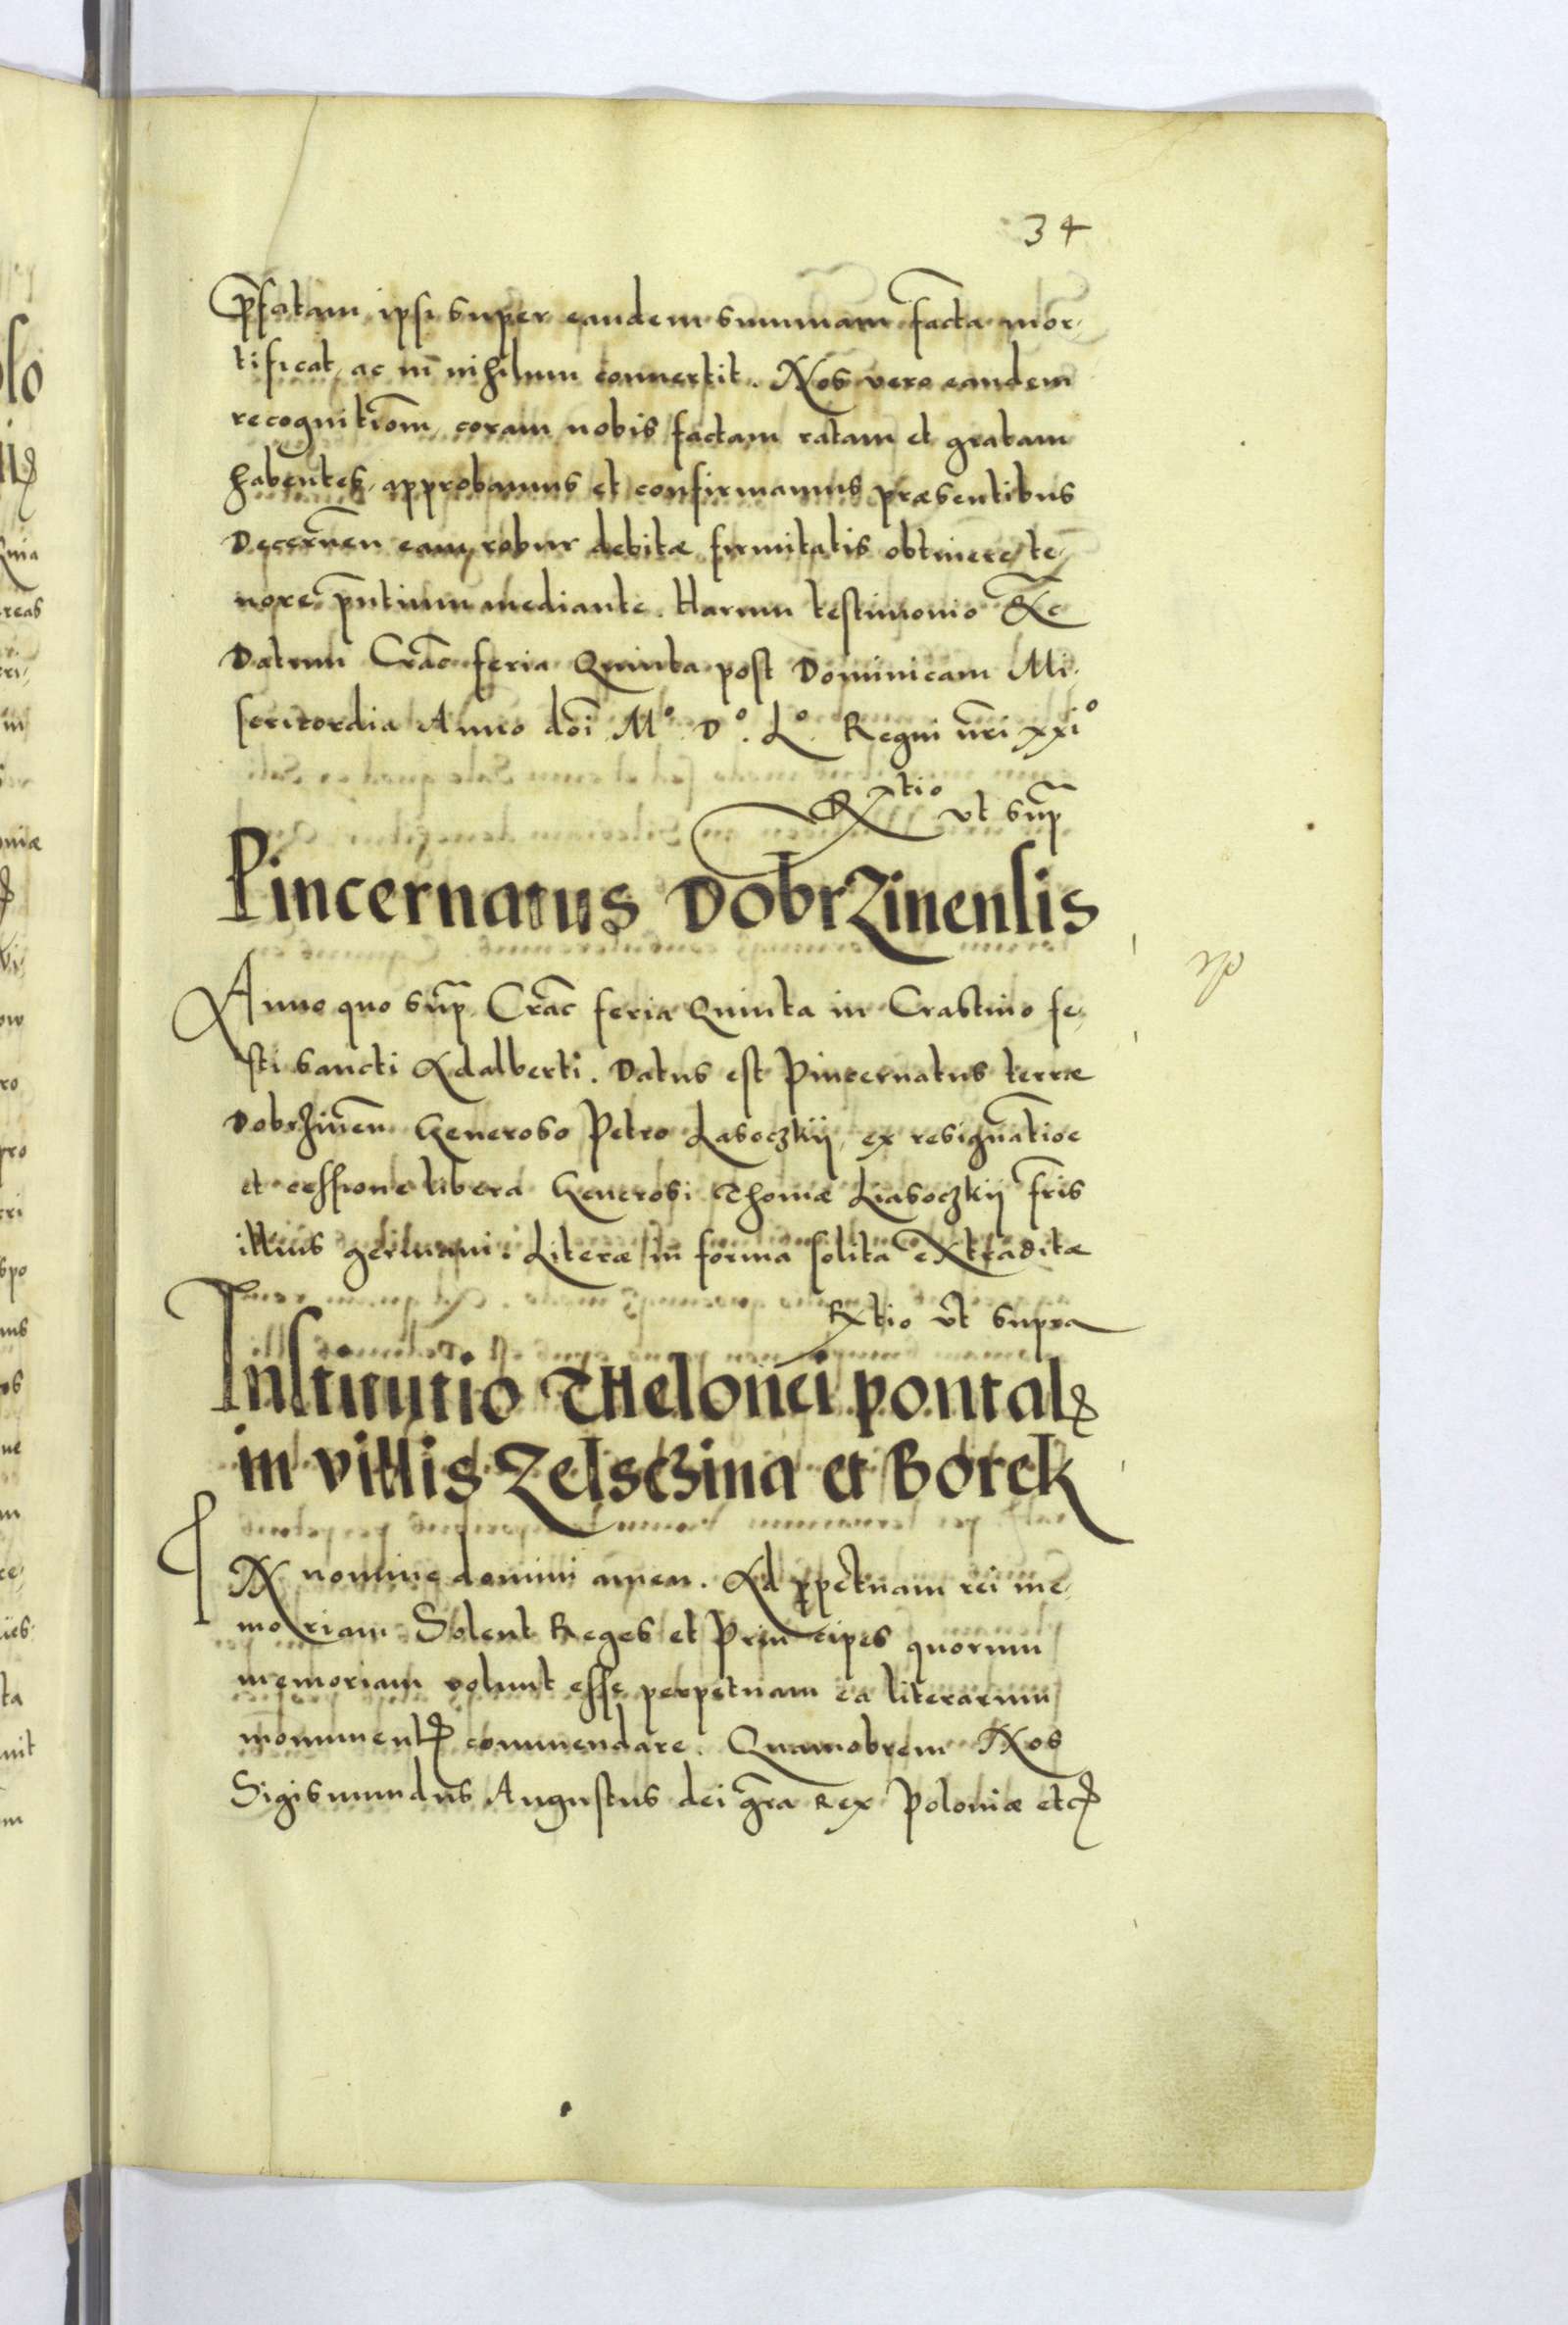 34
p̄fatam ipsi super eandem summam facta mor-
tificat, ac in nihilum connertit. Nos vero eandem
recognitiōm, coram nobis factam ratam et gratam
habentes, approbamus et confirmamus præsentibus
Decernēn eam robur debitæ firmitatis obtinere te-
nore p̄ntium mediante. Harum testimonio &c
Datum Crac̄ feria Quinta post Dominicam Mi-
sericordia Anno doī Mº. Dº. Lº. Regni nr̄i xxiº
Rtio vt sup̄
Pincernatus DobrZinensis
Anno quo sup̄ Crac̄ feria Quinta in Crastino fe-
sti sancti Adalberti. Datus est Pincernatus terræ
Dobrzinēn Generoso Petro Lasoczkij, ex resignatioē
et cessione libera Generosi Thomæ Liasoczkij fr̄is
illius germani. Literæ in forma solita extraditæ
Rtio vt supra
Institutio THelonei pontal
in villis Zelsczina et Borek
IN nomine domini amen. Ad ꝑpetuam rei me-
moriam Solent Reges et Principes quorum
memoriam volunt esse perpetuam ea literarum
monument commendare. Quamobrem Nos
Sigismundus Augustus dei gr̄a Rex Poloniæ etc